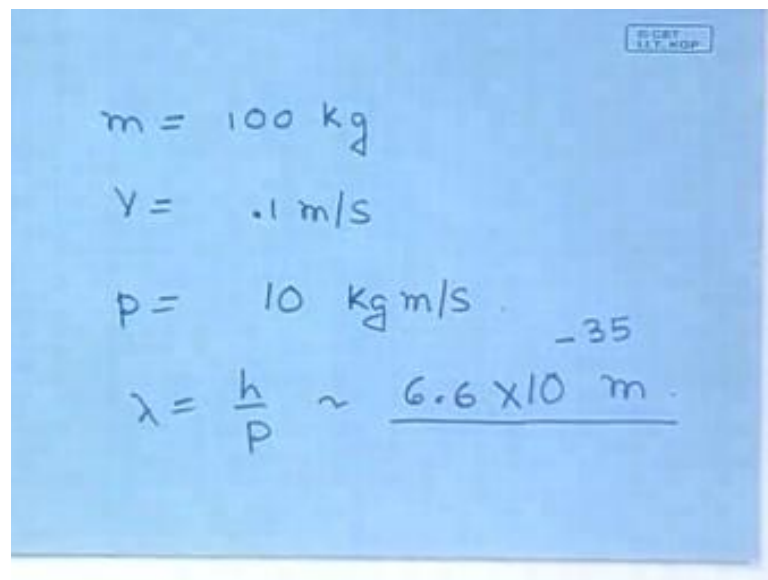 © CET
I.I.T. KGP
m = 100 kg
v = .1 m/s
p = 10 kg m/s.
λ = h/p ~ 6.6 × 10⁻³⁵ m.